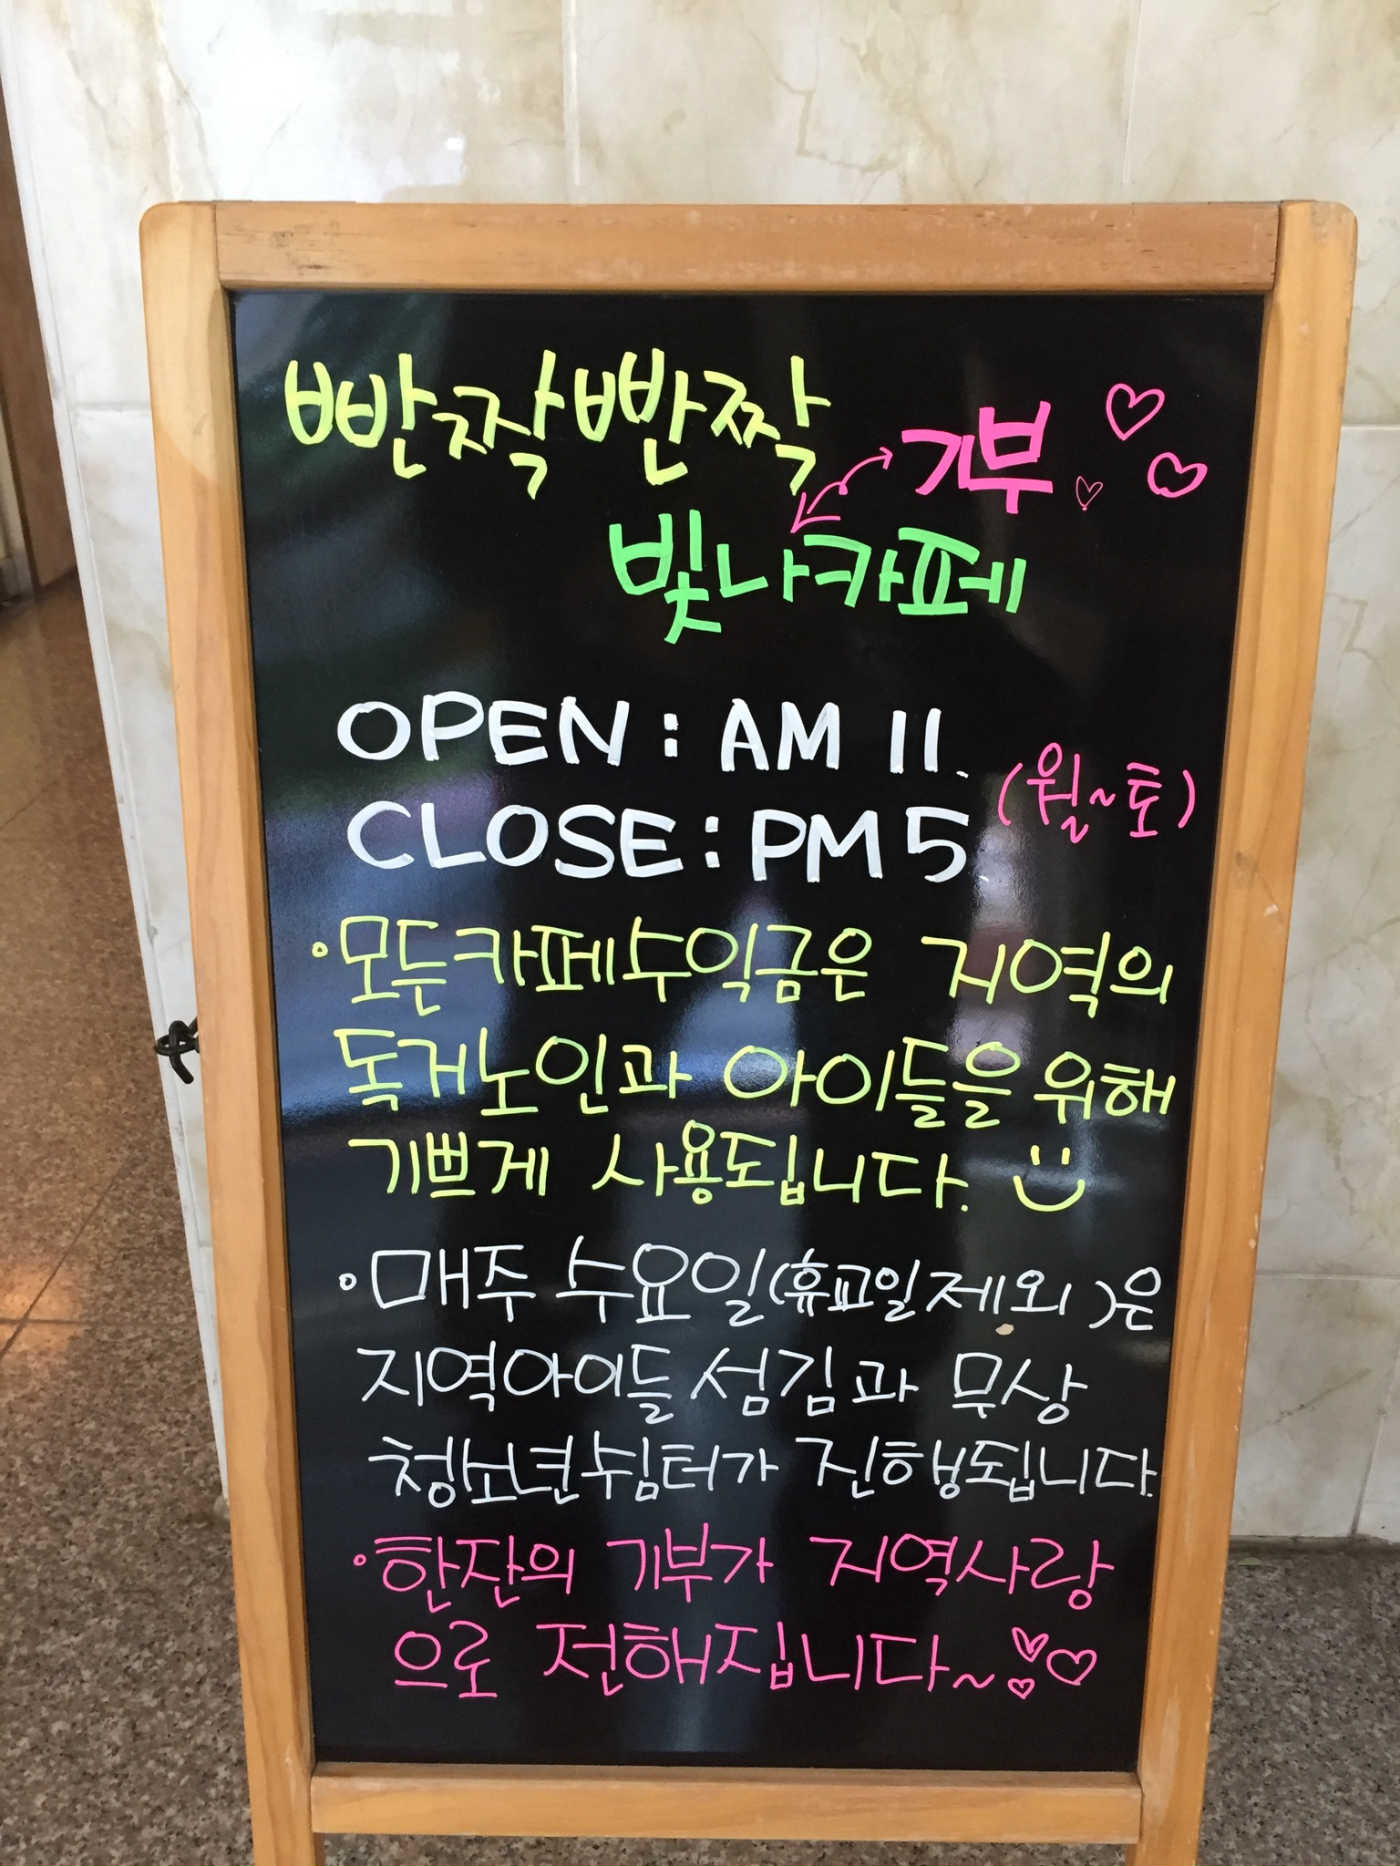 빤짝빤짝
기부
빛나카페
OPEN : AM 11.
CLOSE : PM 5
(월~토)
·모든카페수익금은 지역의
독거노인과 아이들을 위해
기쁘게 사용됩니다.
·매주 수요일(휴교일제외)은
지역아이들 섬김과 무상
청소년쉼터가 진행됩니다.
·한잔의 기부가 지역사랑
으로 전해집니다~